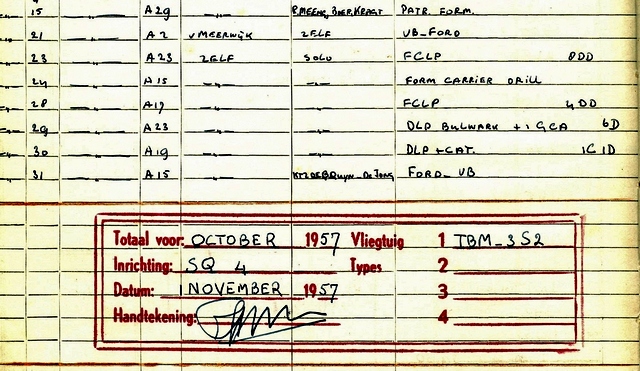 15 A29 P.MEENS, BOER, KRAGT PATR. FORM.
21 —"— A2 v MEERWIJK ZELF VB-FORD
23 —"— A23 ZELF SOLO FCLP 8DD
24 —"— A15 —"— —"— FORM CARRIER DRILL
28 —"— A17 —"— —"— FCLP 4DD
29 —"— A23 —"— —"— DLP BULWARK + 1 GCA 6D
30 —"— A19 —"— —"— DLP + CAT. 1C 1D
31 —"— A15 —"— FORD-VB
Totaal voor: OCTOBER 1957 Vliegtuig 1 TBM-3S2
Inrichting: SQ 4 Types 2
Datum: 1 NOVEMBER 1957 3
Handtekening: 4